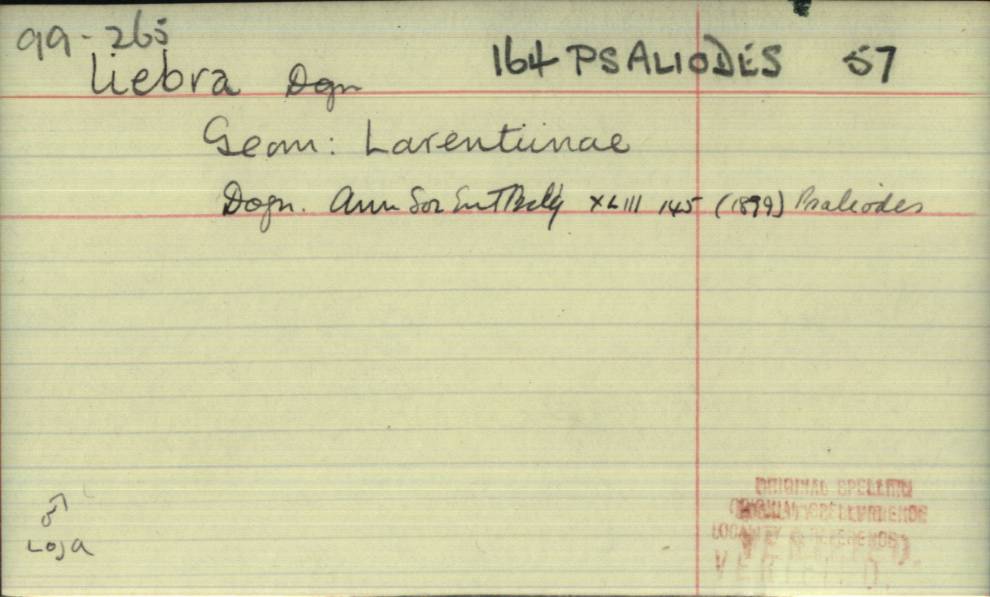 99-265
liebra Dogn 164 PSALIODES 57
Geom: Larentiinae
Dogn. Ann Soc Ent Belg XLIII 145 (1899) Psaliodes
♂
Loja
ORIGINAL SPELLING
VERIFIED.